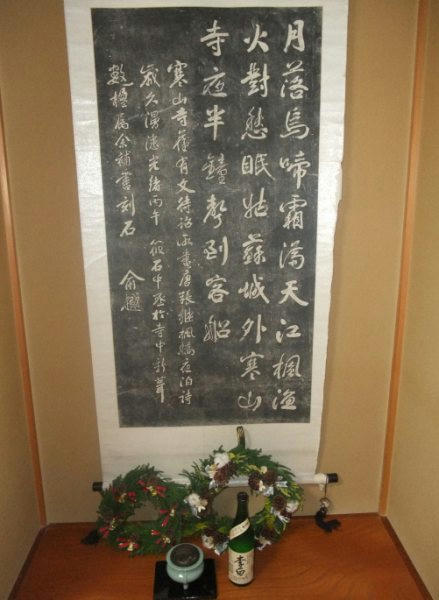 月落烏啼霜滿天江楓漁
火對愁眠姑蘇城外寒山
寺夜半鐘聲到客船
寒山寺舊有文待詔所書唐張繼楓橋夜泊詩
歲久漫漶光緒丙午筱石中丞於寺中新葺
數楹屬余補書刻石 俞樾
李白